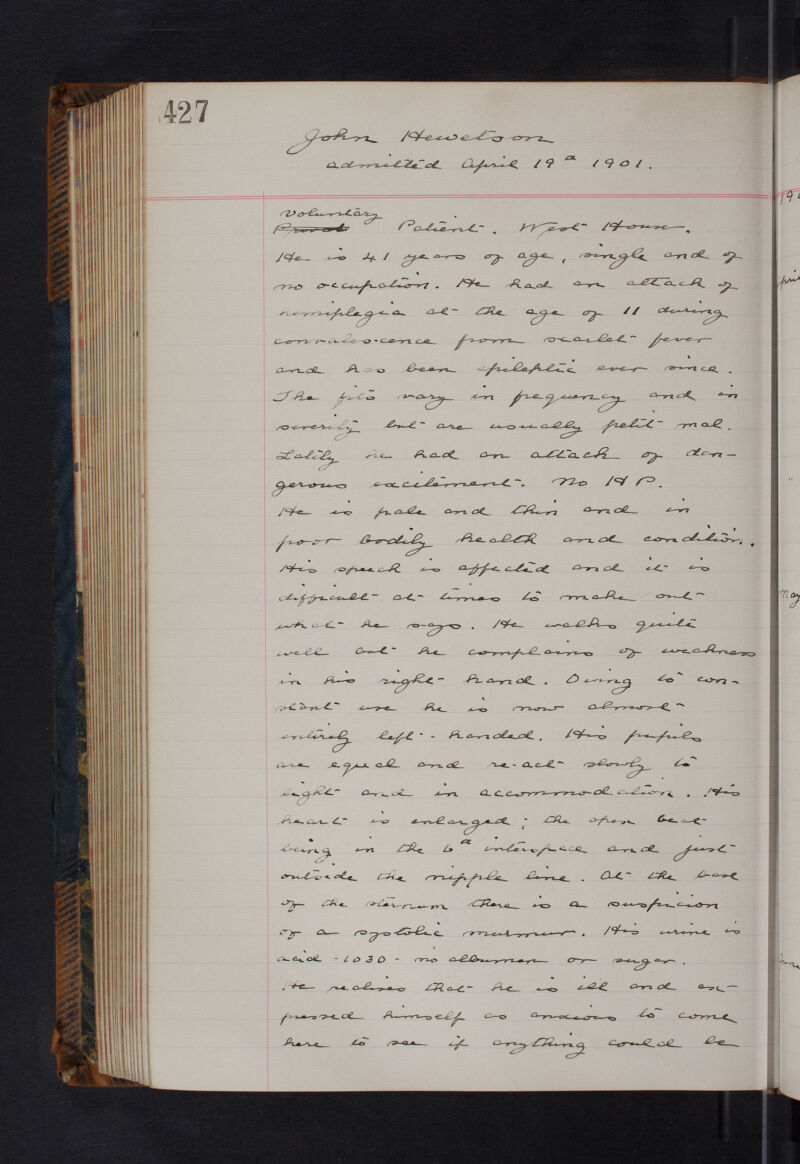 427
John Hewetson
admitted April 19th 1901.
Voluntary
Patient. West House.
He is 41 years of age, single and of
no occupation. He had an attack of
hemiplegia at the age of 11 during
convalescence from scarlet fever
and has been epileptic ever since.
The fits vary in frequency and in
severity but are usually petit mal.
Lately he had an attack of dan-
gerous excitement. No H P.
He is pale and thin and in
poor bodily health and condition.
His speech is affected and it is
difficult at times to make out
what he says. He walks quite
well but he complains of weakness
in his right hand. Owing to con-
stant use he is now almost
entirely left-handed. His pupils
are equal and re-act slowly to
light and in accommodation. His
heart is enlarged; the apex beat
being in the 6th interspace and just
outside the nipple line. At the base
of the sternum there is a suspicion
of a systolic murmur. His urine is
acid - 1030 - no albumen or sugar.
He realises that he is ill and ex-
pressed himself as anxious to come
here to see if anything could be
190
May